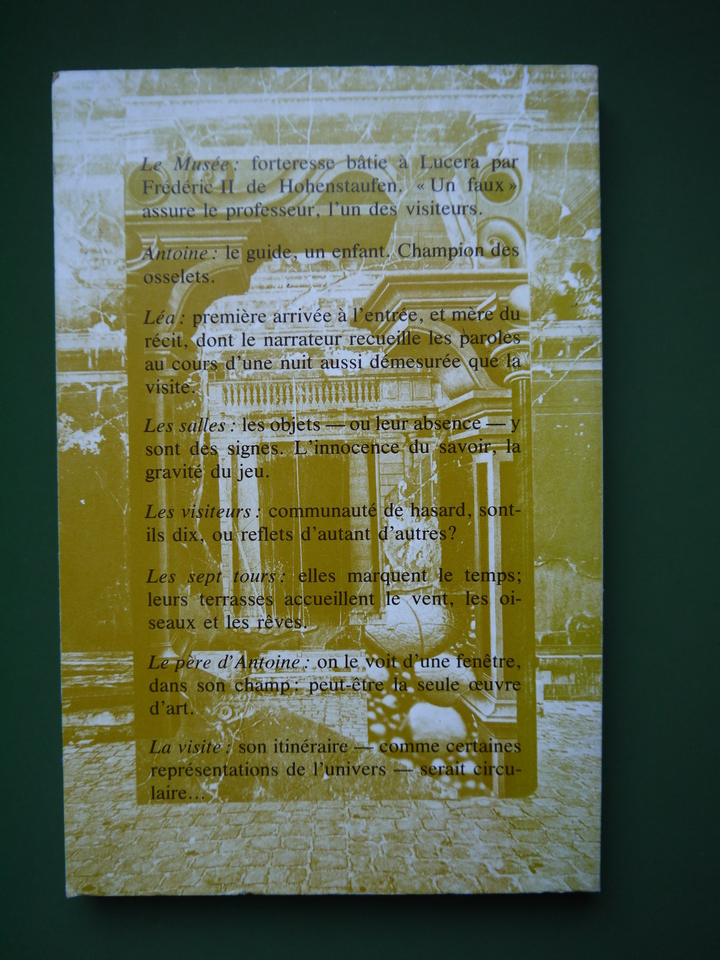 Le Musée : forteresse bâtie à Lucera par
Frédéric II de Hohenstaufen. « Un faux »
assure le professeur, l'un des visiteurs.
Antoine : le guide, un enfant. Champion des
osselets.
Léa : première arrivée à l'entrée, et mère du
récit, dont le narrateur recueille les paroles
au cours d'une nuit aussi démesurée que la
visite.
Les salles : les objets — ou leur absence — y
sont des signes. L'innocence du savoir, la
gravité du jeu.
Les visiteurs : communauté de hasard, sont-
ils dix, ou reflets d'autant d'autres ?
Les sept tours : elles marquent le temps ;
leurs terrasses accueillent le vent, les oi-
seaux et les rêves.
Le père d'Antoine : on le voit d'une fenêtre,
dans son champ : peut-être la seule œuvre
d'art.
La visite : son itinéraire — comme certaines
représentations de l'univers — serait circu-
laire...